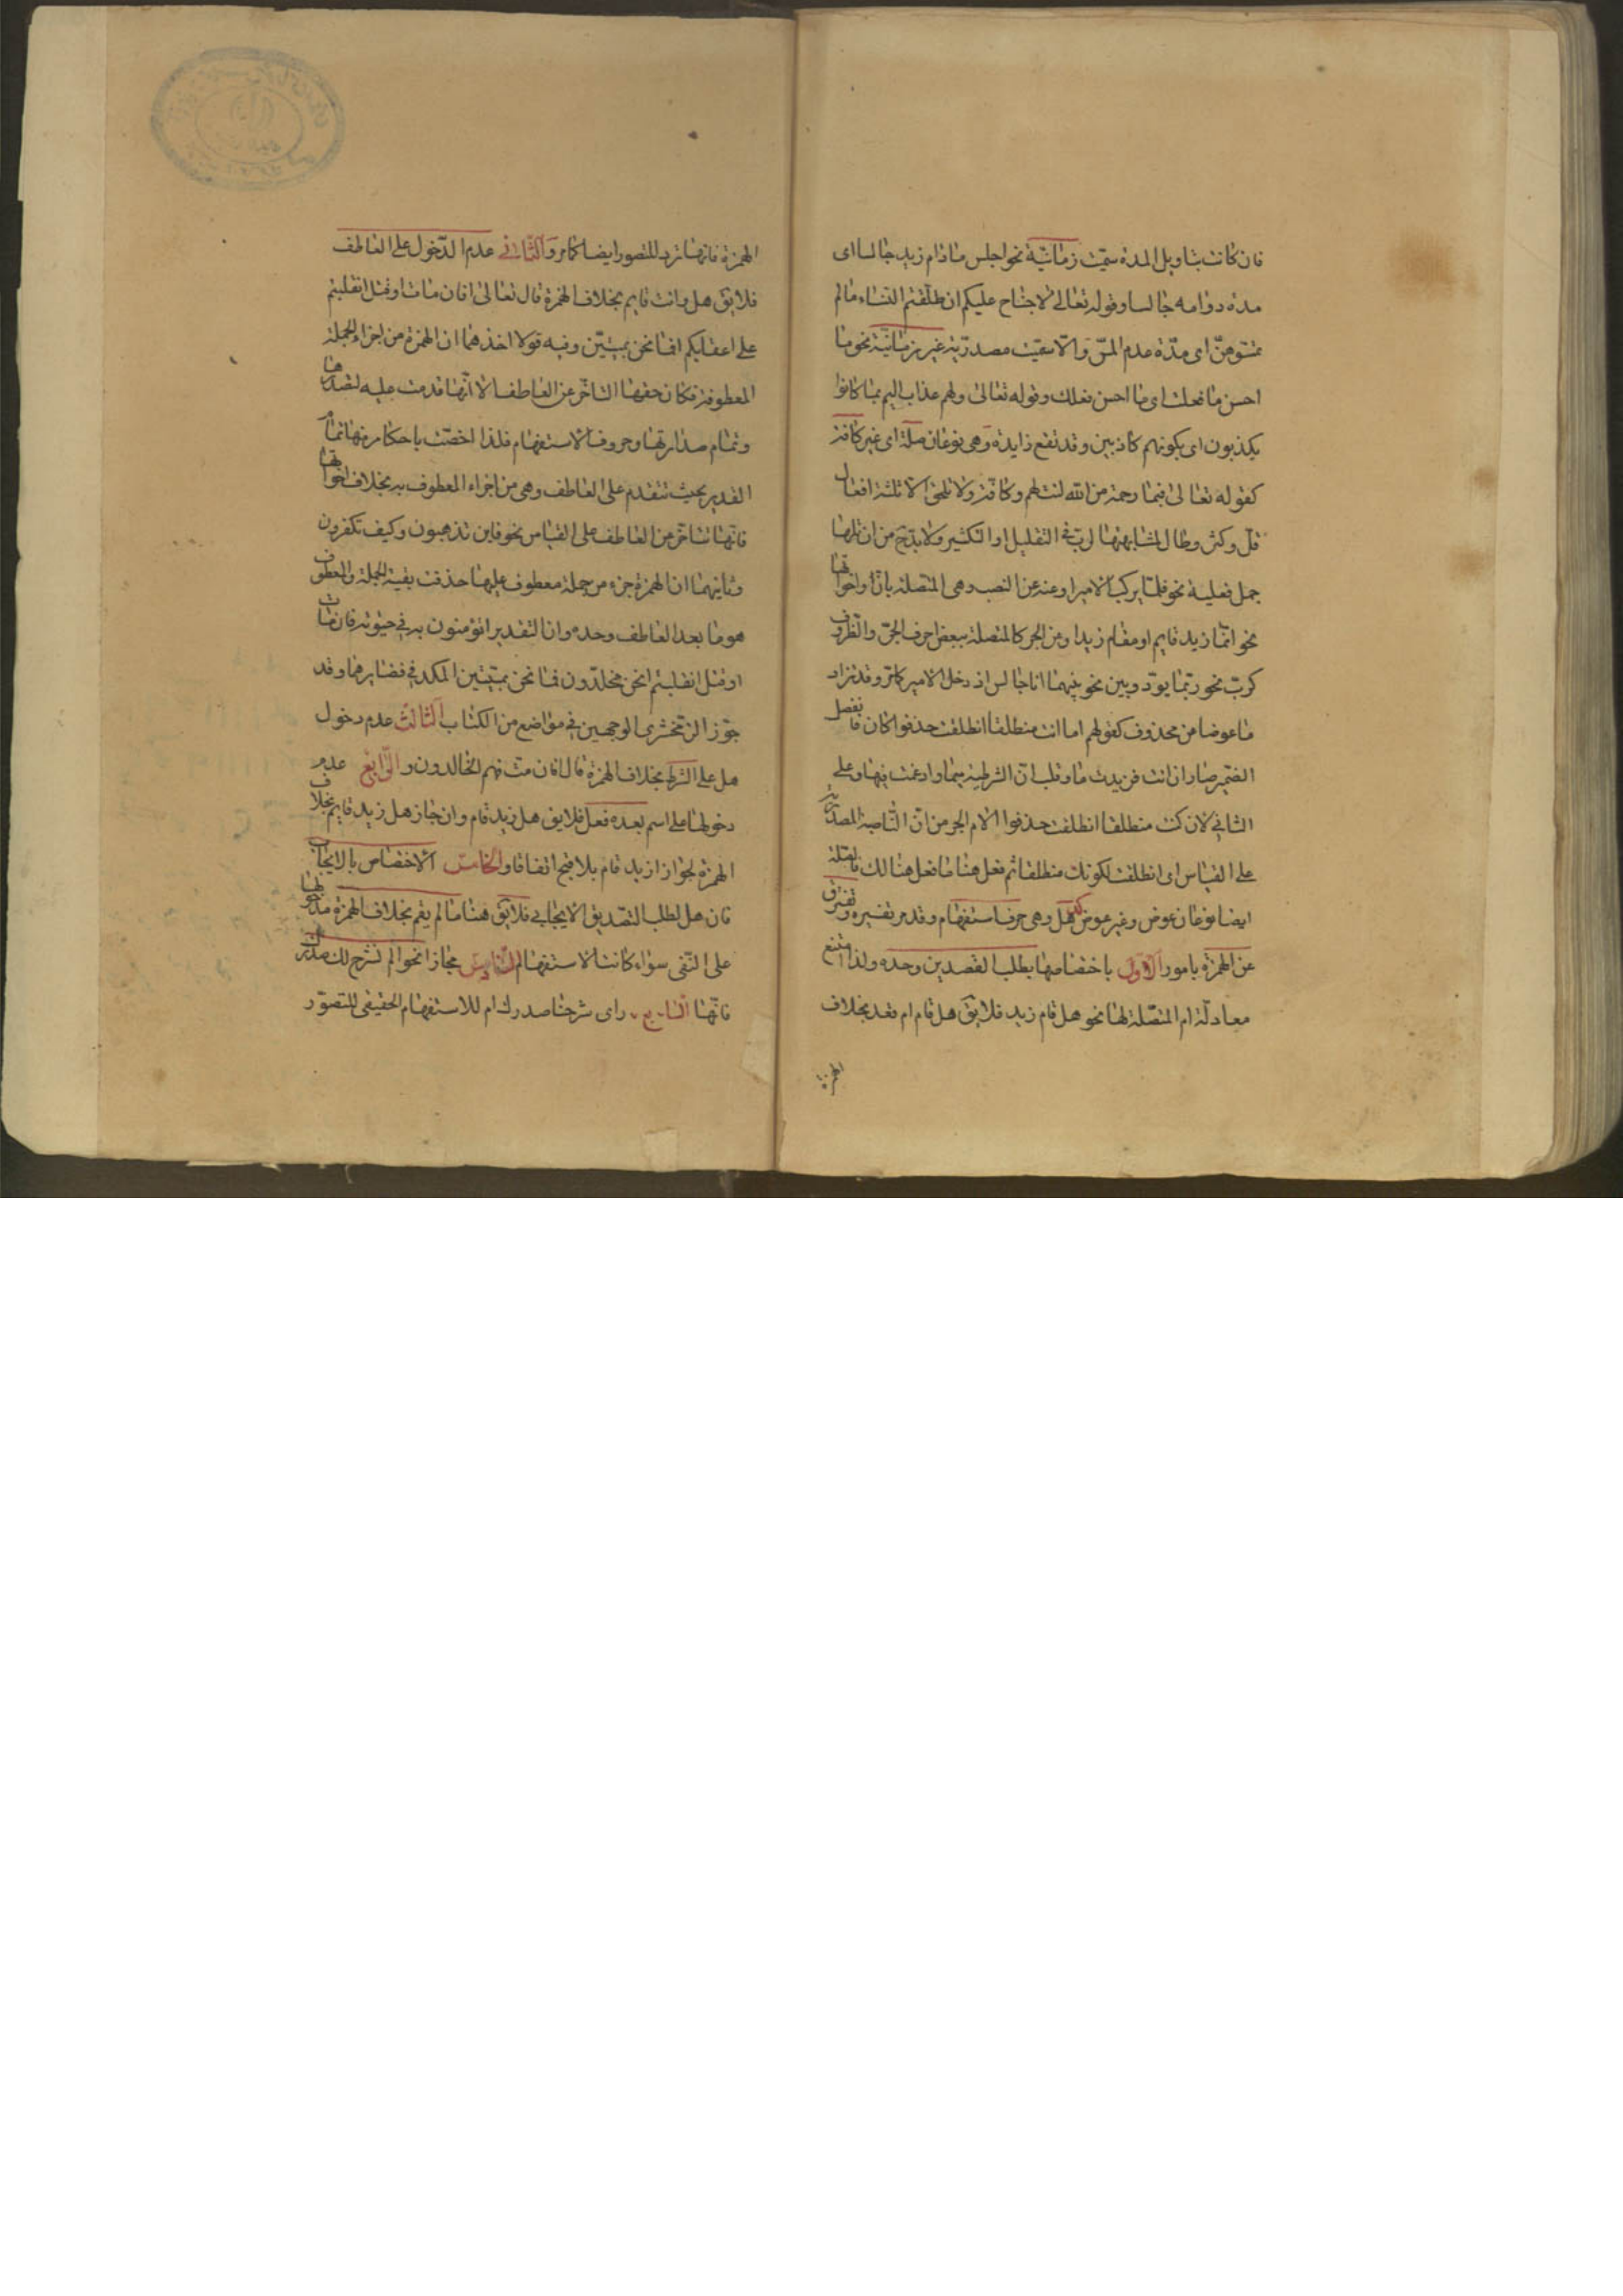 فان كانت بتاويل المدة سمّيت زمانيّة نحو اجلس مادام زيد جالسا اى
مدة دوامه جالسا وقوله تعالى لا جناح عليكم ان طلّقتم النّساء مالم
تمسّوهنّ اى مدّة عدم المسّ والّا سمّيت مصدريّة غير زمانيّة نحو ما
احسن ما فعلك اى ما احسن فعلك وقوله تعالى ولهم عذاب اليم بما كانوا
يكذبون اى بكونهم كاذبين وقد تقع زايدة وهى نوعان صلة اى غير كافة
كقوله تعالى فبما رحمة من الله لنت لهم وكافّة ولا تلحق الا ثلثة افعال
قلّ وكثر وطال لمشابهتها لربّ فى التقليل او التكثير ولا بدّ ح من ان تليها
جمل فعلية نحو قلّما يركب الامير او عنه عن النصب وهى المتصلة بانّ واخواتها
نحو انّما زيد قايم او مقام زيد او عن الجر كالمتصلة ببعض احرف الجرّ والظروف
كربّ نحو ربّما يودّ وبين نحو بينهما انا جالس اذ دخل الامير كما مرّ وقد تزاد
ما عوضا من محذوف كقولهم اما انت منطلقا انطلقت حذفوا كان فانفصل
الضمير صار ان انت فزيدت ما وقلب انّ الشرطيّة ميما وادغمت فيها وعلى
الثانى لان كنت منطلقا انطلقت حذفوا لام الجر من ان النّاصبة المصدريّة
على القياس اى انطلقت لكونك منطلقا ثم فعل هنا ما فعل هنالك فالصلة
ايضا نوعان عوض وغير عوض كلمة هل وهى حرف استفهام وقد مر تفسيره وتفترق
عن الهمزة بامور الاول باختصاصها بطلب التصديق وحده ولذا امتنع
معادلة ام المتصلة لها نحو هل قام زيد فلا يق هل قام ام قعد بخلاف
الهمزة
الهمزة فانها ترد للتصور ايضا كما مر والثّانى عدم الدّخول على العاطف
فلا يق هل وانت قايم بخلاف الهمزة قال تعالى افان مات او قتل انقلبتم
على اعقابكم افما نحن بميّتين وفيه قولا احدهما ان الهمزة من اجزاء الجملة
المعطوفة فكان حقها التاخّر عن العاطف الا انّها قدمت عليه لتصدرها
وتمام صدارتها وحروف الاستفهام فلذا اختصّت باحكام منها تمام
القدير بحيث تتقدم على العاطف وهى من اجزاء المعطوف به بخلاف اخواتها
فانّها تتاخّر عن العاطف على القياس نحو فاين تذهبون وكيف تكفرون
وثانيهما ان الهمزة جزء من جملة معطوف عليها حذفت بقية الجملة والمعطوف
هو ما بعد العاطف وحده وان التقدير اتؤمنون به فى حيوته فان مات
او قتل انقلبتم انحن مخلدّون فما نحن بميّتين
جوّز الزّمخشرى الوجهين فى مواضع من الكتاب الثالث عدم دخول
هل على الشرط بخلاف الهمزة قال افان مت فهم الخالدون والرّابع عدم
دخولها على اسم بعده فعل فلا يق هل زيد قام وان جاز هل زيد قايم بخلاف
الهمزة لجواز ازيد قام بلا قبح اتفاقا والخامس الاختصاص بالايجاب
فان هل لطلب التصديق الايجابى فلا يق هنا مالم يقم بخلاف الهمزة مدخولها
على النّفى سواء كانت الاستفهام السّادس مجازا نحو الم نشرح لك صدرك
فانّها السّابع اى شرحنا صدرك ام للاستفهام الحقيقى للتصوّر